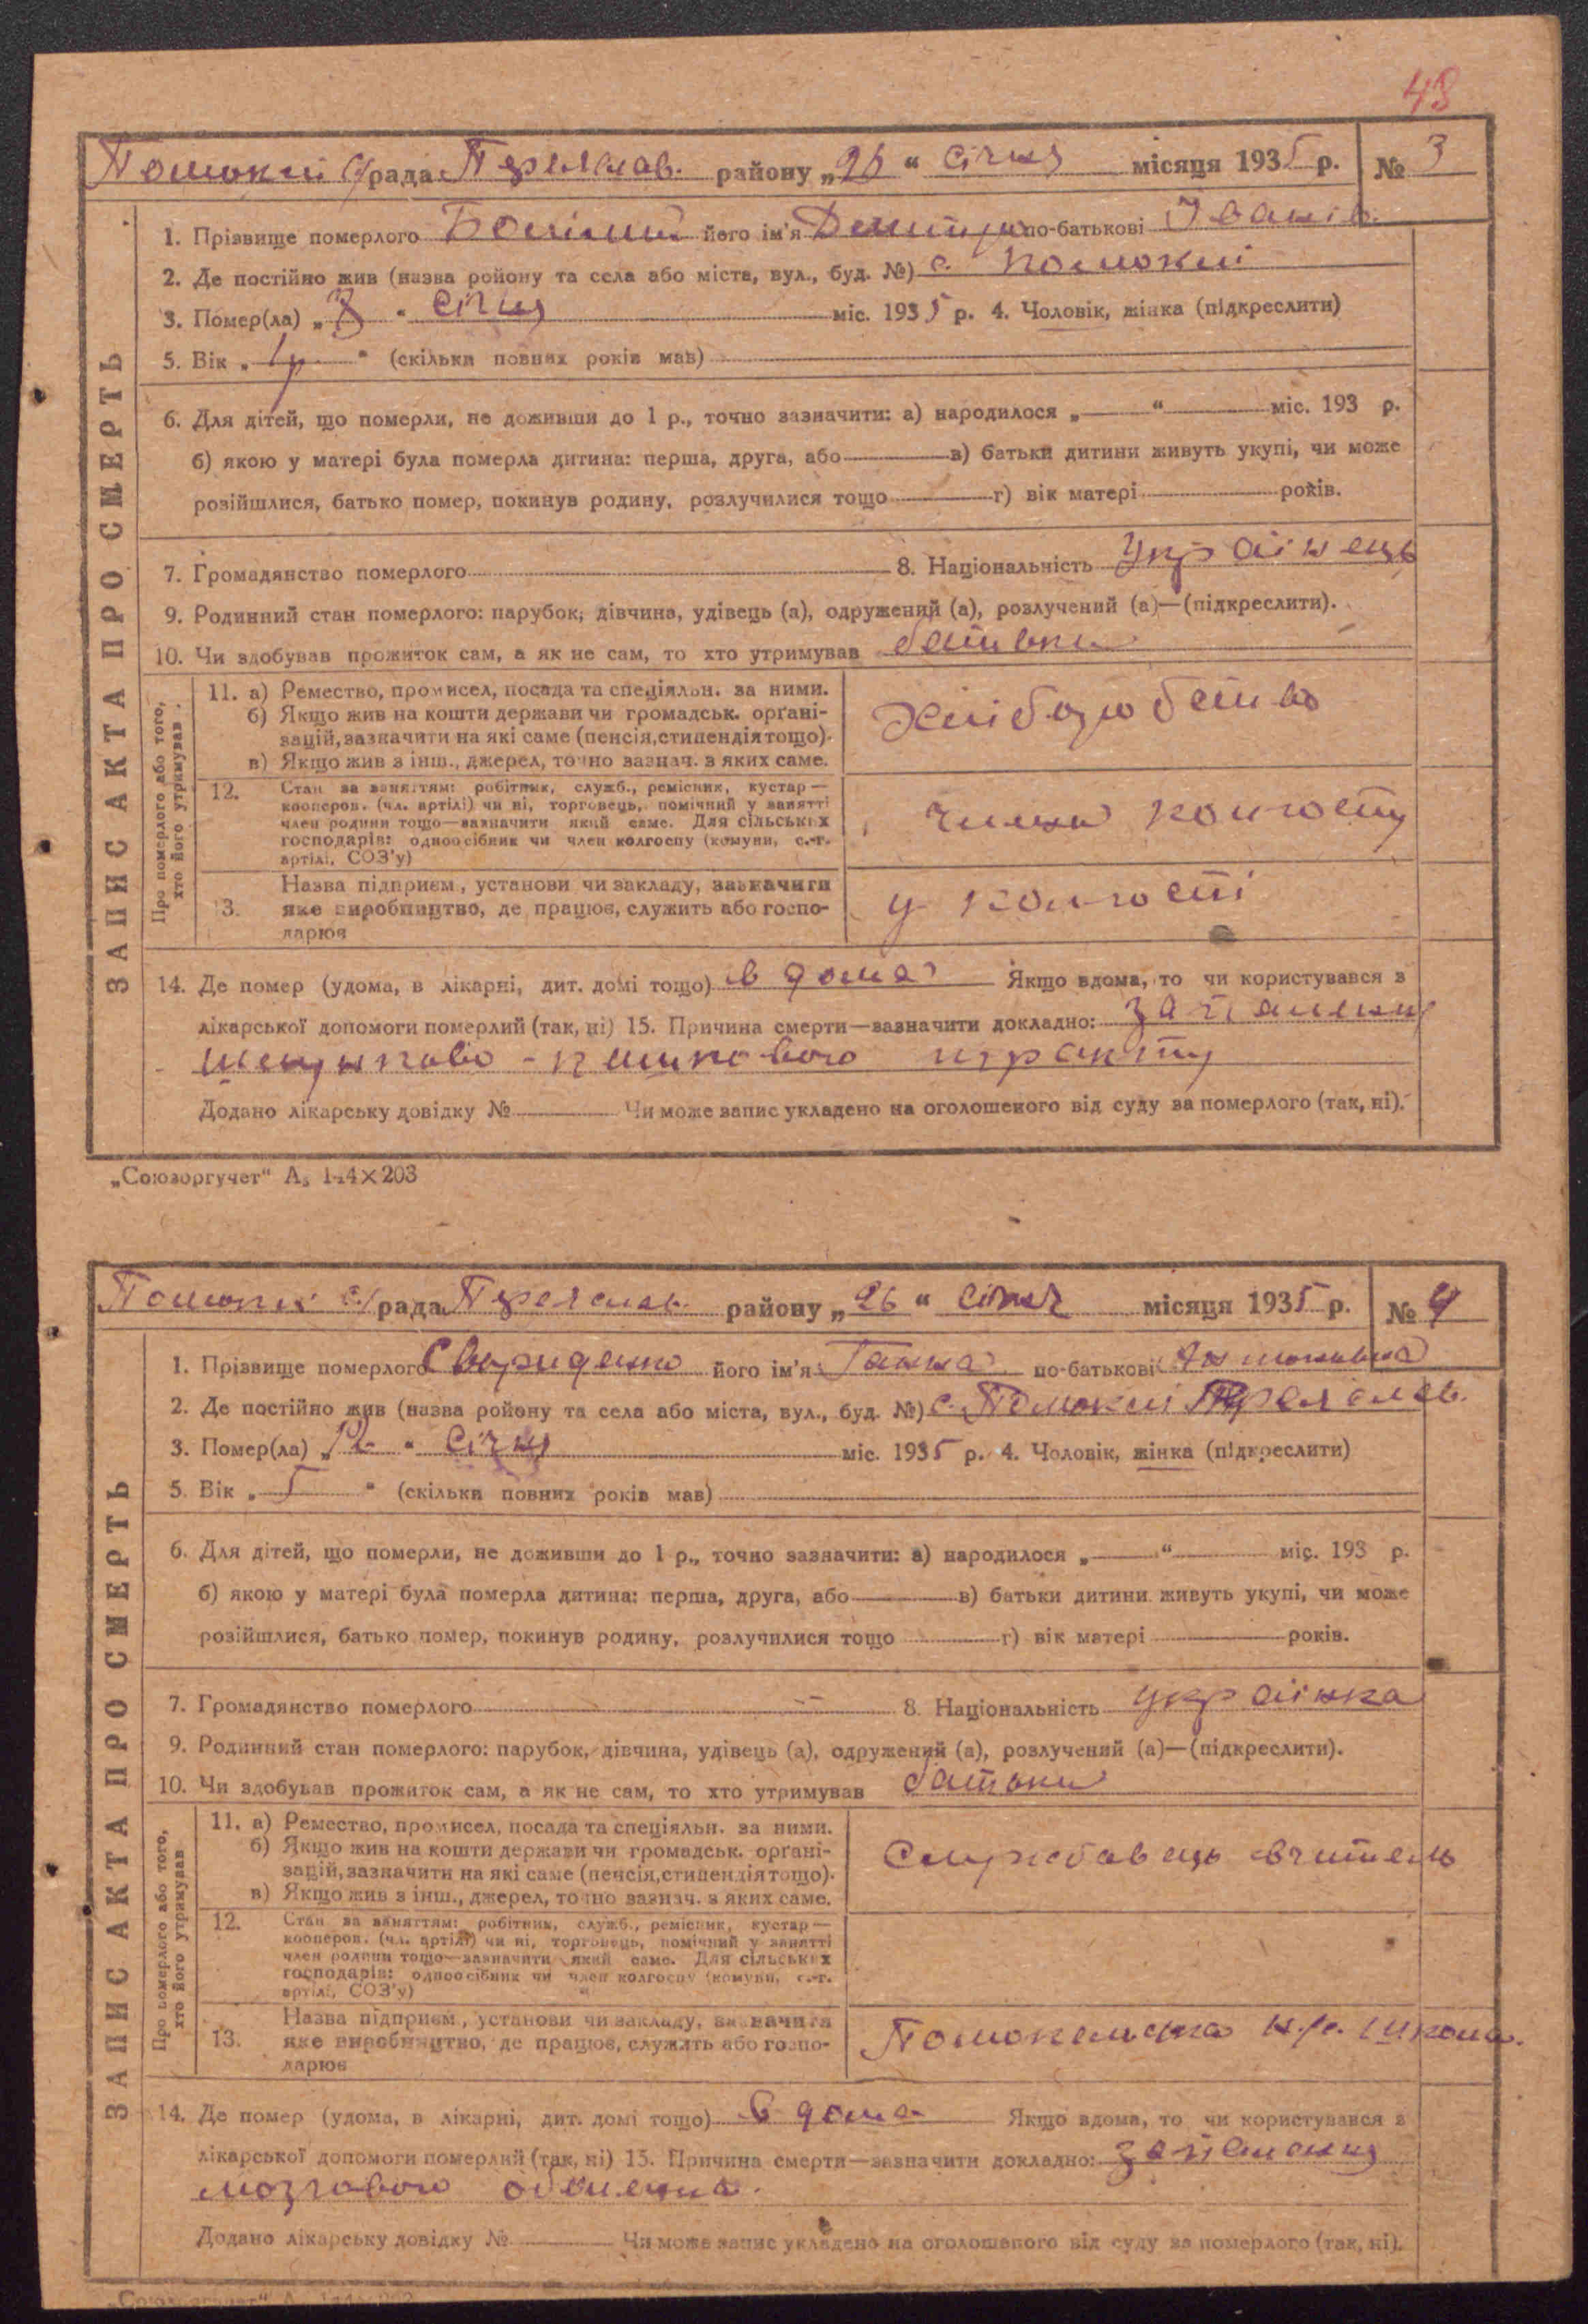 48
Помокли с/рада Переяслав. району „26“ січня місяця 1935 р. № 3
ЗАПИС АКТА ПРО СМЕРТЬ
1. Прізвище померлого його ім'я Дмитро по-батькові Іванів.
2. Де постійно жив (назва ройону та села або міста, вул., буд. №) с. Помоклі
3. Помер(ла) „3“ січня міс. 1935 р. 4. Чоловік, жінка (підкреслити)
5. Вік „1р.“ (скільки повних років мав)
6. Для дітей, що померли, не доживши до 1 р., точно зазначити: а) народилося „ “ міс. 193 р.
б) якою у матері була померла дитина: перша, друга, або в) батьки дитини живуть укупі, чи може
розійшлися, батько помер, покинув родину, розлучилися тощо г) вік матері років.
7. Громадянство померлого 8. Національність Українець
9. Родинний стан померлого: парубок, дівчина, удівець (а), одружений (а), розлучений (а)—(підкреслити).
10. Чи здобував прожиток сам, а як не сам, то хто утримував батьки
Про померлого або того, хто його утримував
11. а) Ремество, промисел, посада та спеціяльн. за ними.
б) Якщо жив на кошти держави чи громадськ. орґані-
зацій, зазначити на які саме (пенсія, стипендія тощо).
в) Якщо жив з інш., джерел, точно зазнач. з яких саме.
Хліборобство
12. Стан за заняттям: робітник, служб., ремісник, кустар —
кооперов. (чл. артілі) чи ні, торговець, помічний у занятті
член родини тощо—зазначити який саме. Для сільських
господарів: одноосібник чи член колгоспу (комуни, с.-г.
артілі, СОЗ'у)
члени колгоспу
13. Назва підприєм., установи чи закладу, зазначити
яке виробництво, де працює, служить або госпо-
дарює
у колгоспі
14. Де помер (удома, в лікарні, дит. домі тощо) в дома Якщо вдома, то чи користувався з
лікарської допомоги померлий (так, ні) 15. Причина смерти—зазначити докладно: запалення
шлунково - кишкового тракту
Додано лікарську довідку № Чи може запис укладено на оголошеного від суду за померлого (так, ні).
„Союзоргучет“ А5 144×203
Помоклі с/рада Переяслав. району „26“ січня місяця 1935 р. № 4
ЗАПИС АКТА ПРО СМЕРТЬ
1. Прізвище померлого Свириденко його ім'я Ганна по-батькові Антонівна
2. Де постійно жив (назва ройону та села або міста, вул., буд. №) с. Помоклі Переяслав.
3. Помер(ла) січня міс. 1935 р. 4. Чоловік, жінка (підкреслити)
5. Вік „ “ (скільки повних років мав)
6. Для дітей, що померли, не доживши до 1 р., точно зазначити: а) народилося „ “ міс. 193 р.
б) якою у матері була померла дитина: перша, друга, або в) батьки дитини живуть укупі, чи може
розійшлися, батько помер, покинув родину, розлучилися тощо г) вік матері років.
7. Громадянство померлого 8. Національність українка
9. Родинний стан померлого: парубок, дівчина, удівець (а), одружений (а), розлучений (а)—(підкреслити).
10. Чи здобував прожиток сам, а як не сам, то хто утримував батьки
Про померлого або того, хто його утримував
11. а) Ремество, промисел, посада та спеціяльн. за ними.
б) Якщо жив на кошти держави чи громадськ. орґані-
зацій, зазначити на які саме (пенсія, стипендія тощо).
в) Якщо жив з інш., джерел, точно зазнач. з яких саме.
Службовець вчитель
12. Стан за заняттям: робітник, служб., ремісник, кустар —
кооперов. (чл. артілі) чи ні, торговець, помічний у занятті
член родини тощо—зазначити який саме. Для сільських
господарів: одноосібник чи член колгоспу (комуни, с.-г.
артілі, СОЗ'у)
13. Назва підприєм., установи чи закладу, зазначити
яке виробництво, де працює, служить або госпо-
дарює
Помокельська н.с. школа.
14. Де помер (удома, в лікарні, дит. домі тощо) в дома Якщо вдома, то чи користувався з
лікарської допомоги померлий (так, ні) 15. Причина смерти—зазначити докладно: запалення
мозгового
Додано лікарську довідку № Чи може запис укладено на оголошеного від суду за померлого (так, ні).